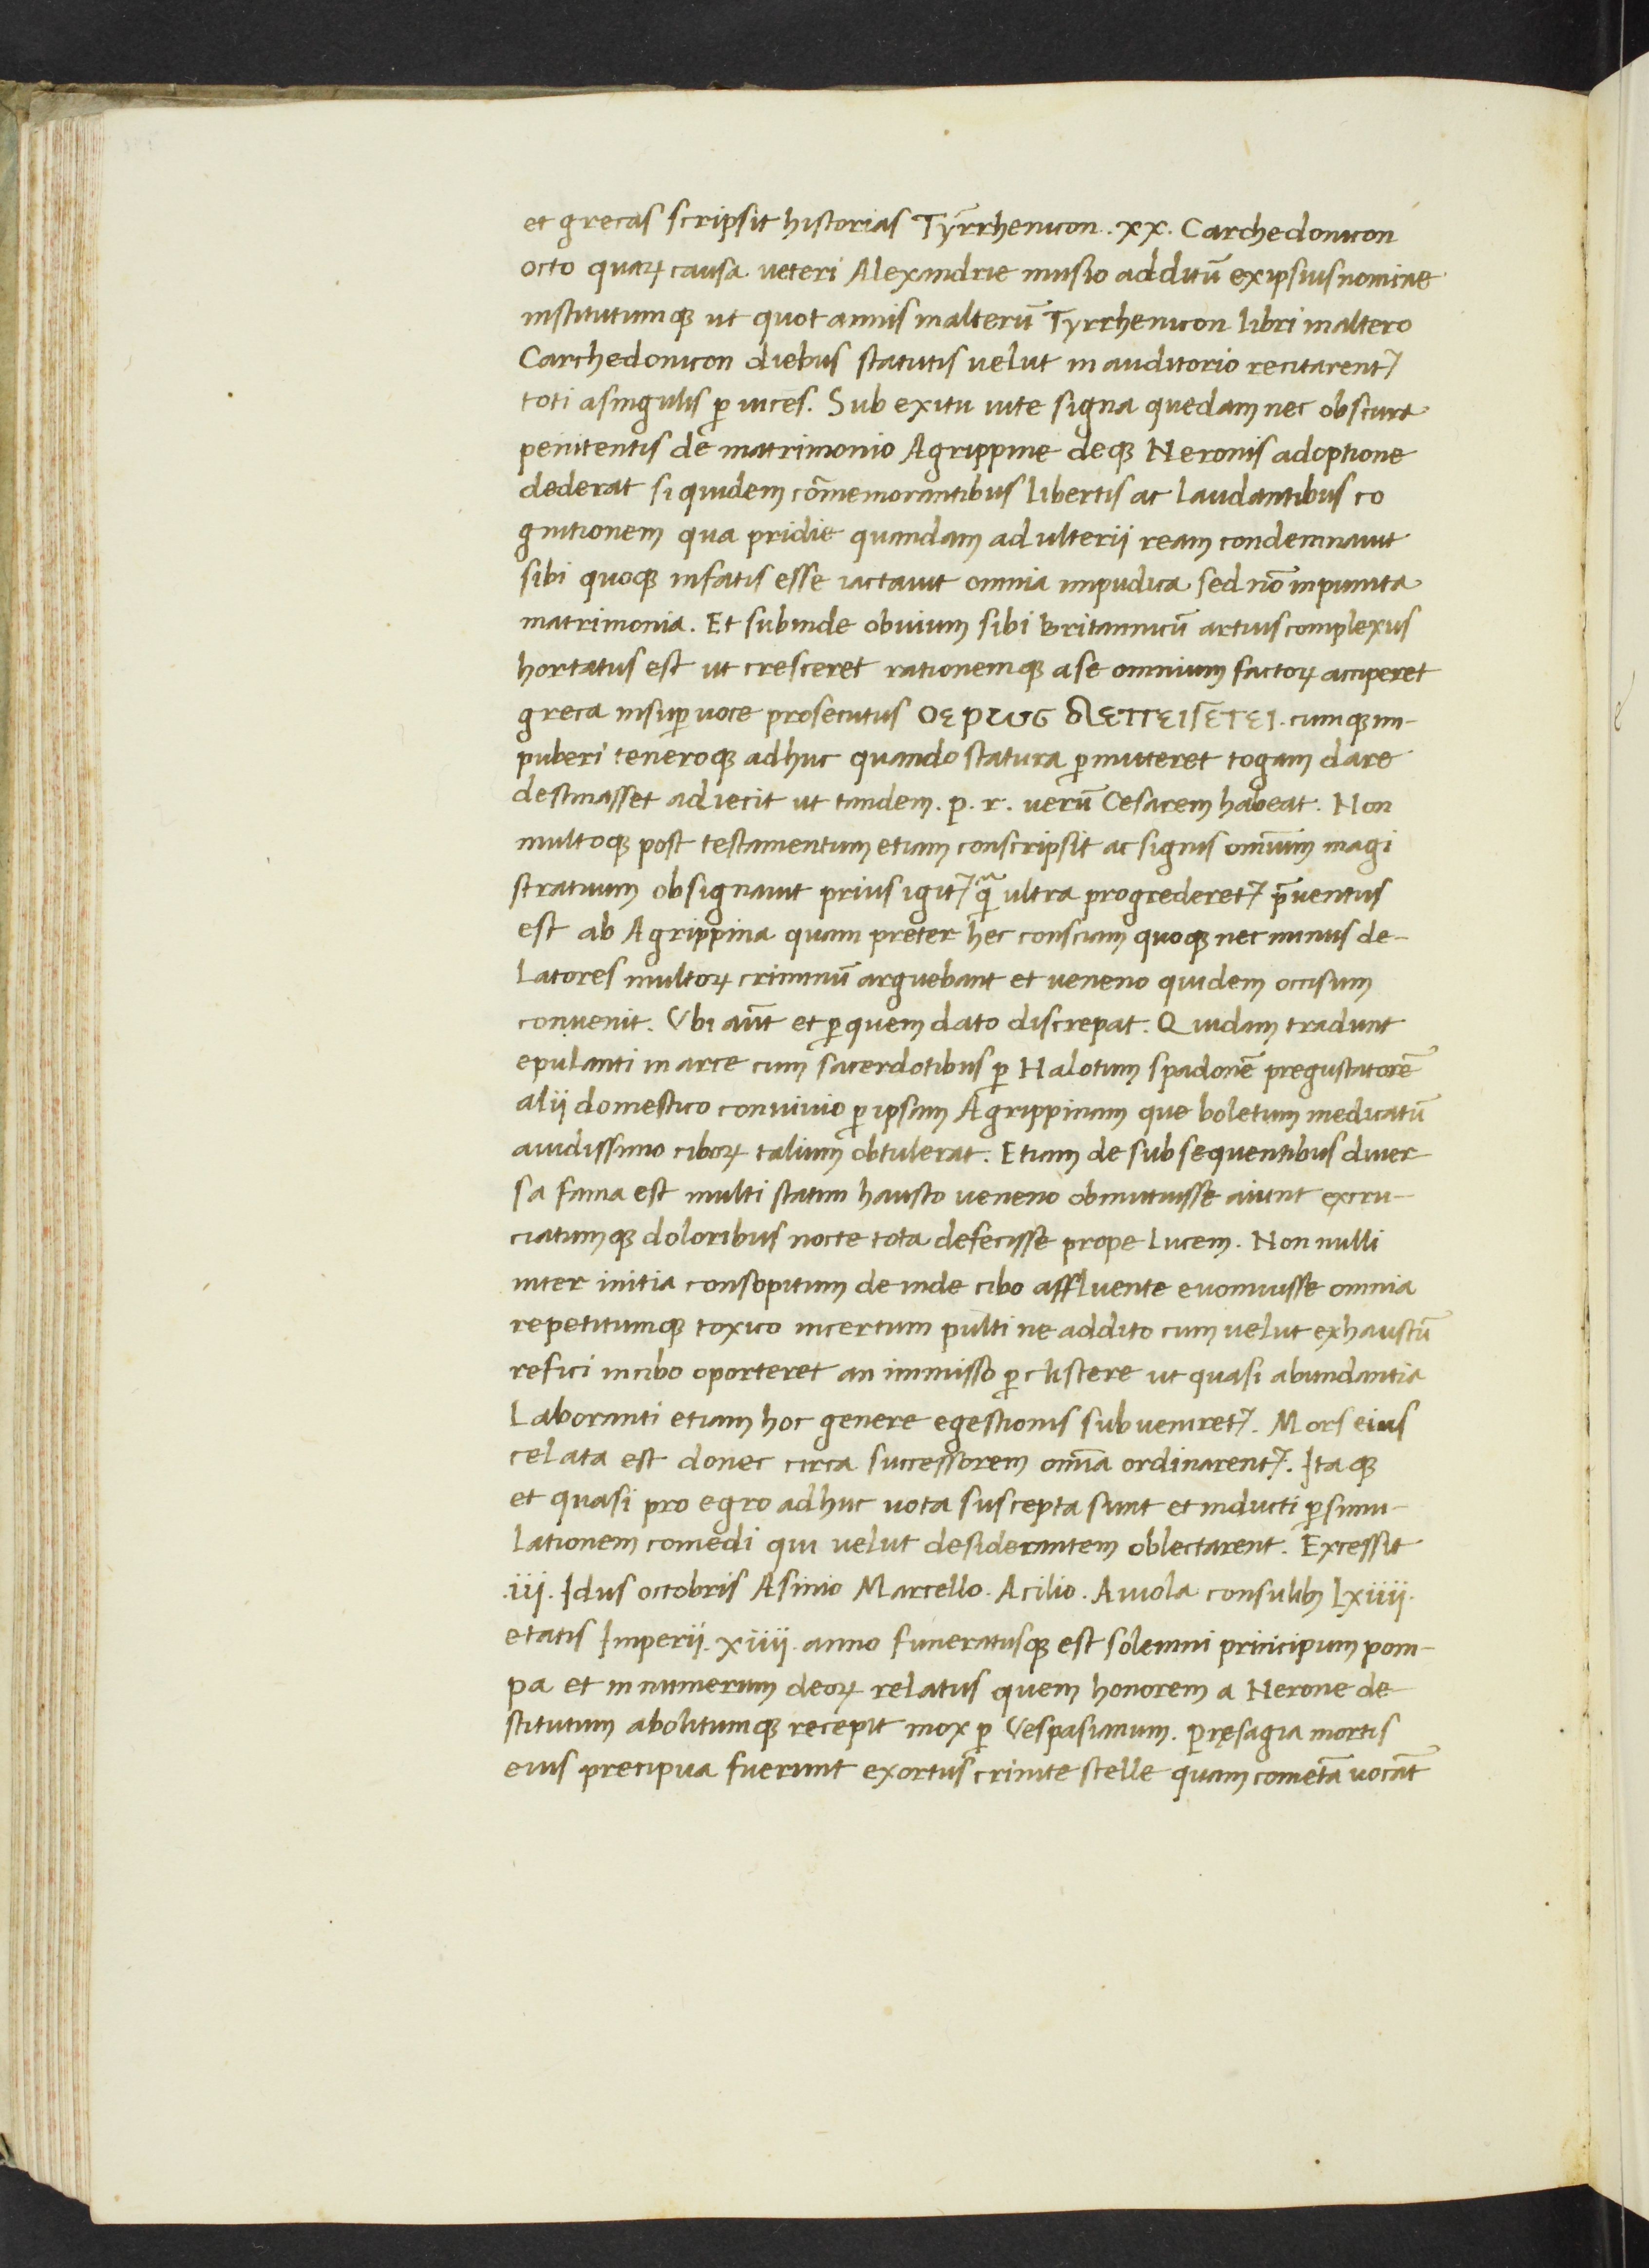 et grecas scripsit historias Tyrrhenicon . xx . Carchedonicon
octo quaꝝ causa veteri Alexandrie musio additū ex ipsius nomine
institutumqꝫ ut quot annis in alterū Tyrrhenicon libri in altero
Carchedonicon diebus statutis velut in auditorio recitarent᷑
toti a singulis ꝑ vices . Sub exitu vite signa quedam nec obscura
penitentis de matrimonio Agrippine deqꝫ Neronis adoptione
dederat si quidem cōmemorantibus libertis ac laudantibus co
gnitionem qua pridie quandam adulterii ream condemnavit
sibi quoqꝫ in fatis esse iactavit omnia impudica sed nō inpunita
matrimonia . Et subinde obvium sibi Britannicū artius complexus
hortatus est ut cresceret rationemqꝫ a se omnium factoꝝ acciperet
greca insuꝑ voce prosecutus cumqꝫ im-
puberi teneroqꝫ adhuc quando statura ꝑmitteret togam dare
destinasset adiecit ut tandem . p . r . verū Cesarem habeat . Non
multoqꝫ post testamentum etiam conscripsit ac signis omnium magi
stratuum obsignavit prius igit᷑ qᷓ ultra progrederet᷑ p̄ventus
est ab Agrippina quam preter hec consciam quoqꝫ nec minus de-
latores multoꝝ criminū arguebant et veneno quidem occisum
convenit . Ubi aūt et ꝑ quem dato discrepat . Quidam tradunt
epulanti in arce cum sacerdotibus ꝑ Halotum spadonē pregustatorē
alii domestico convivio ꝑ ipsam Agrippinam que boletum medicatū
avidissimo ciboꝝ talium obtulerat . Etiam de subsequentibus diver-
sa fama est multi statim hausto veneno obmutuisse aiunt excru-
ciatumqꝫ doloribus nocte tota defecisse prope lucem . Non nulli
inter initia consopitum de inde cibo affluente evomuisse omnia
repetitumqꝫ toxico incertum pulti ne addito cum velut exhaustū
refici in cibo oporteret an immisso ꝑ clistere ut quasi abundantia
laboranti etiam hoc genere egestionis subveniret᷑ . Mors eius
celata est donec circa successorem om̄ia ordinarent᷑ . Itaqꝫ
et quasi pro egro adhuc vota suscepta sunt et inducti ꝑ simu-
lationem comedi qui velut desiderantem oblectarent . Excessit
.iii. Idus octobris Asinio Marcello . Acilio . Aviola consulibꝫ lxiiii .
etatis Imperii . xiiii . anno funeratusqꝫ est solemni principum pom-
pa et in numerum deoꝝ relatus quem honorem a Nerone de-
stitutum abolitumqꝫ recepit mox ꝑ Vespasianum . Pręsagia mortis
eius precipua fuerunt exortus crinite stelle quam cometā vocāt